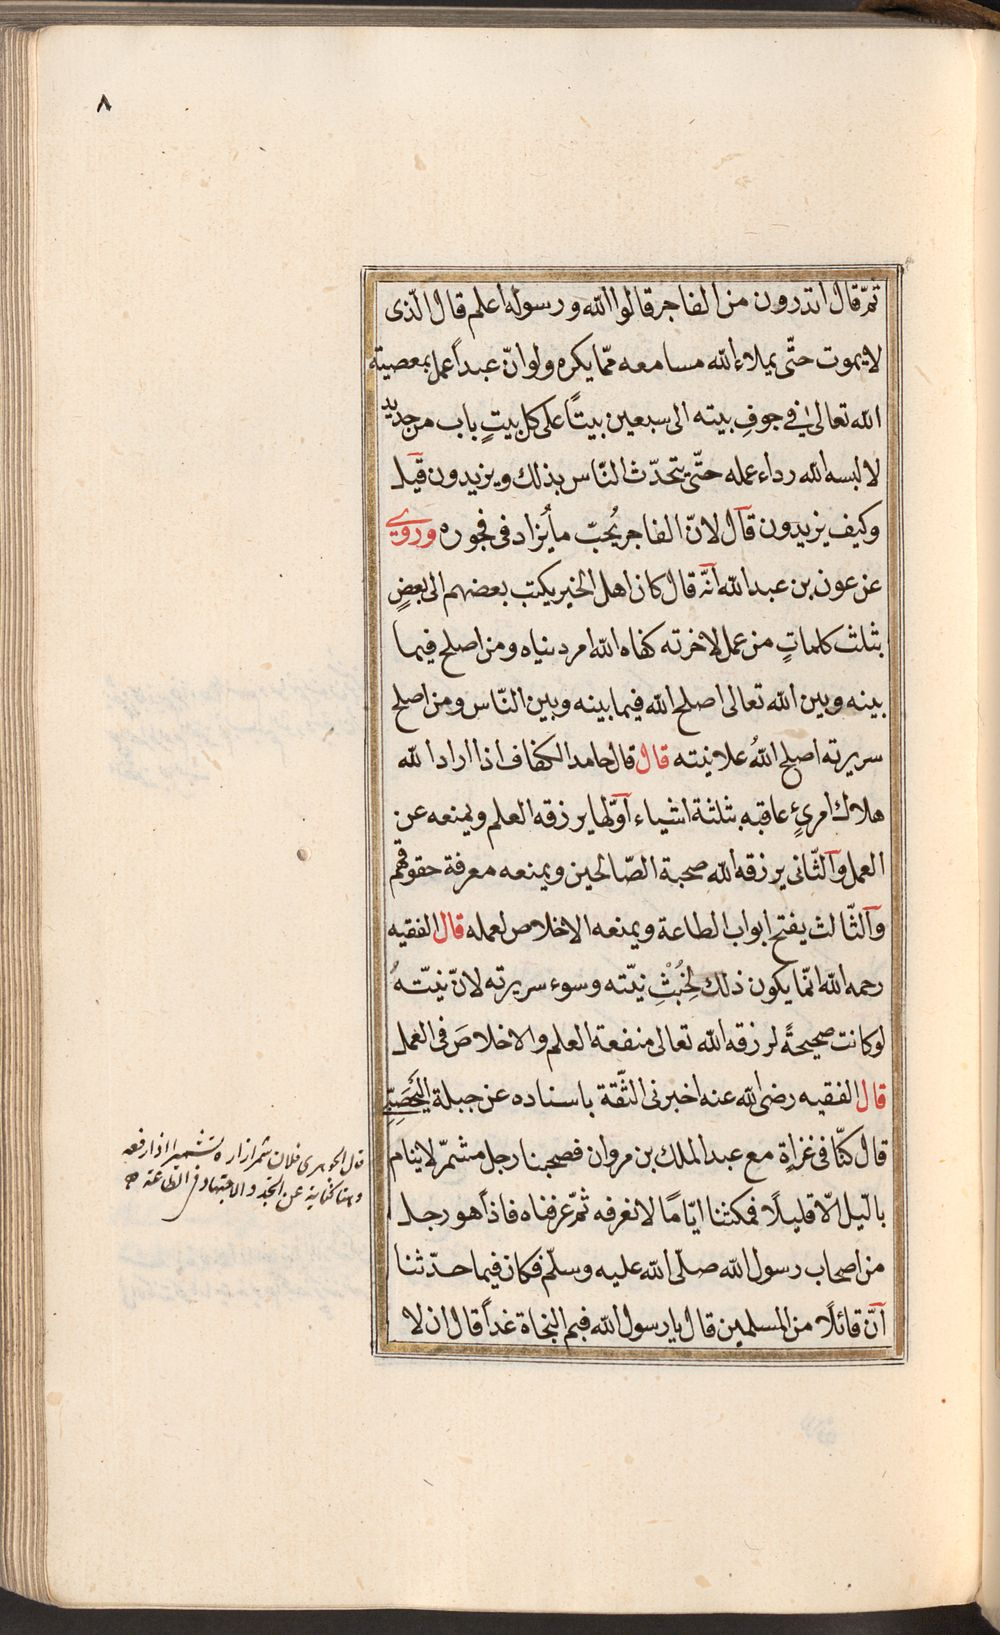 ٨
ثمّ قال اتدرون من الفاجر قالوا الله ورسوله اعلم قال الّذى
لا يموت حتّى يملاء الله مسامعه ممّا يكره ولو انّ عبداً عمل بمعصية
الله تعالى في جوفِ بيته الى سبعين بيتاً على كل بيتٍ باب من حديد
لالبسه الله رداء عمله حتّى يتحدّث النّاس بذلك ويزيدون قيل
وكيف يزيدون قال لانّ الفاجر يُحبّ ما يُزاد فى فجوره وروي
عن عون بن عبد الله انّه قال كان اهل الخير يكتب بعضهم الى بعضٍ
بثلث كلماتٍ من عمل لاخرته كفاه الله امر دنياه ومن اصلح فيما
بينه وبين الله تعالى اصلح الله فيما بينه وبين النّاس ومن اصلح
سريرته اصلح اللهُ علانيته قال قال حامد الكفاف اذا اراد الله
هلاك امرئٍ عاقبه بثلثة اشياء اوّلها يرزقه العلم ويمنعه عن
العمل والثّانى يرزقه الله صحبة الصّالحين ويمنعه معرفة حقوقهم
والثّالث يفتح ابواب الطاعة ويمنعه الاخلاص لعمله قال الفقيه
رحمه الله انّما يكون ذلك لِخُبْثِ نيّته وسوء سريرته لانّ نيّتهُ
لو كانت صحيحةً لرزقه الله تعالى منفعة العلم والاخلاصَ فى العمل
قال الفقيه رضى الله عنه اخبرنى الثّقة باسناده عن جبلة اليَحْصَبِّي
قال كنّا فى غزاةٍ مع عبد الملك بن مروان فصحبنا رجل مشمّر لا ينام
بالّيل الّا قليلًا فمكثنا ايّامًا لا نعرفه ثمّ عرفناه فاذاً هو رجل
من اصحاب رسول الله صلّى الله عليه وسلّم فكان فيما حدّثنا
انّ قائلًا من المسلمين قال يا رسول الله فبم النجاة غداً قال ان لا
قال الجوهرى فلان شمر ازاره تشميرا اذا رفعه
وهنا كناية عن الجد والاجتهاد فى الطاعة